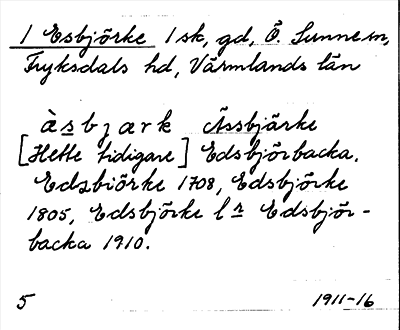 1 Esbjörke 1 sk, gd, Ö. Sunne sn,
Fryksdals hd, Värmlands län
àsbjark Ässbjärke
[Hette tidigare] Edsbjörbacka.
Edzbiörke 1708, Edsbjörke
1805, Edsbjörke l s Edsbjör-
backa 1910.
5 1911-16